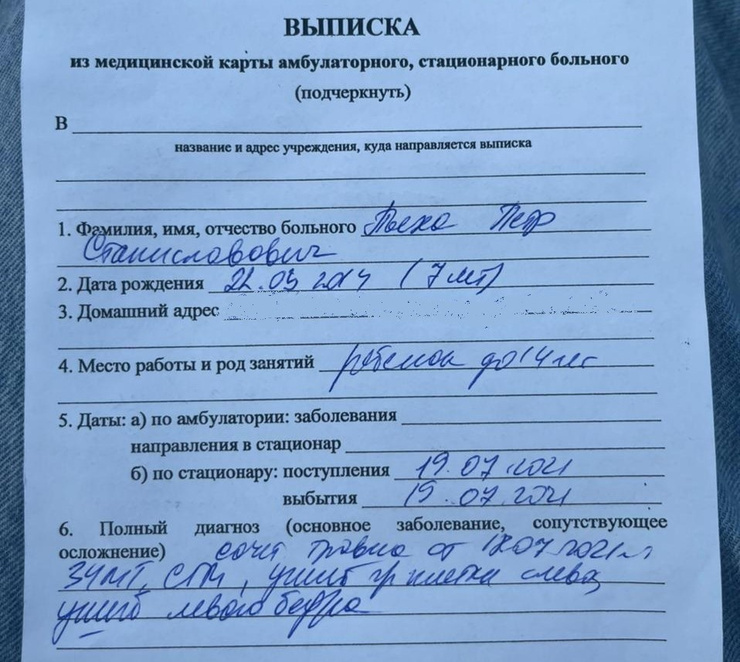 ВЫПИСКА
из медицинской карты амбулаторного, стационарного больного
(подчеркнуть)
В
название и адрес учреждения, куда направляется выписка
1. Фамилия, имя, отчество больного Пьеха Петр
Станиславович
2. Дата рождения 22.03 2014 (7 лет)
3. Домашний адрес
4. Место работы и род занятий ребенок до 14 лет
5. Даты: а) по амбулатории: заболевания
направления в стационар
б) по стационару: поступления 19.07.2021
выбытия 19.07.2021
6. Полный диагноз (основное заболевание, сопутствующее
осложнение) сочет травма от 18.07.2021г
ЗЧМТ, СГМ, ушиб гр клетки слева,
ушиб левого бедра